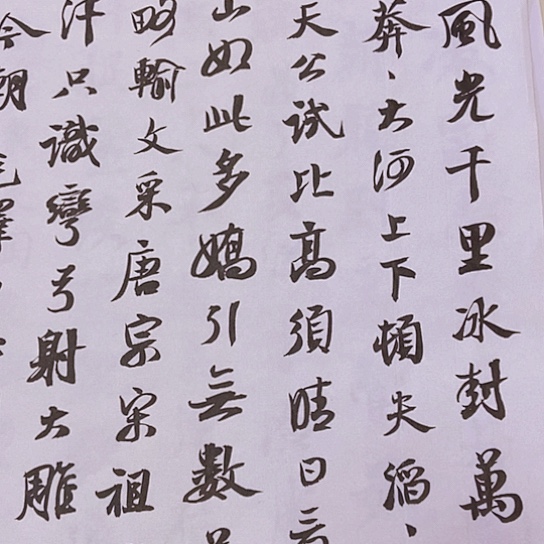 風光千里冰封萬
莽、大河上下頓失滔、
天公試比高須晴日
山如此多嬌引無數
略輸文采唐宗宋祖
汗只識彎弓射大雕
今朝